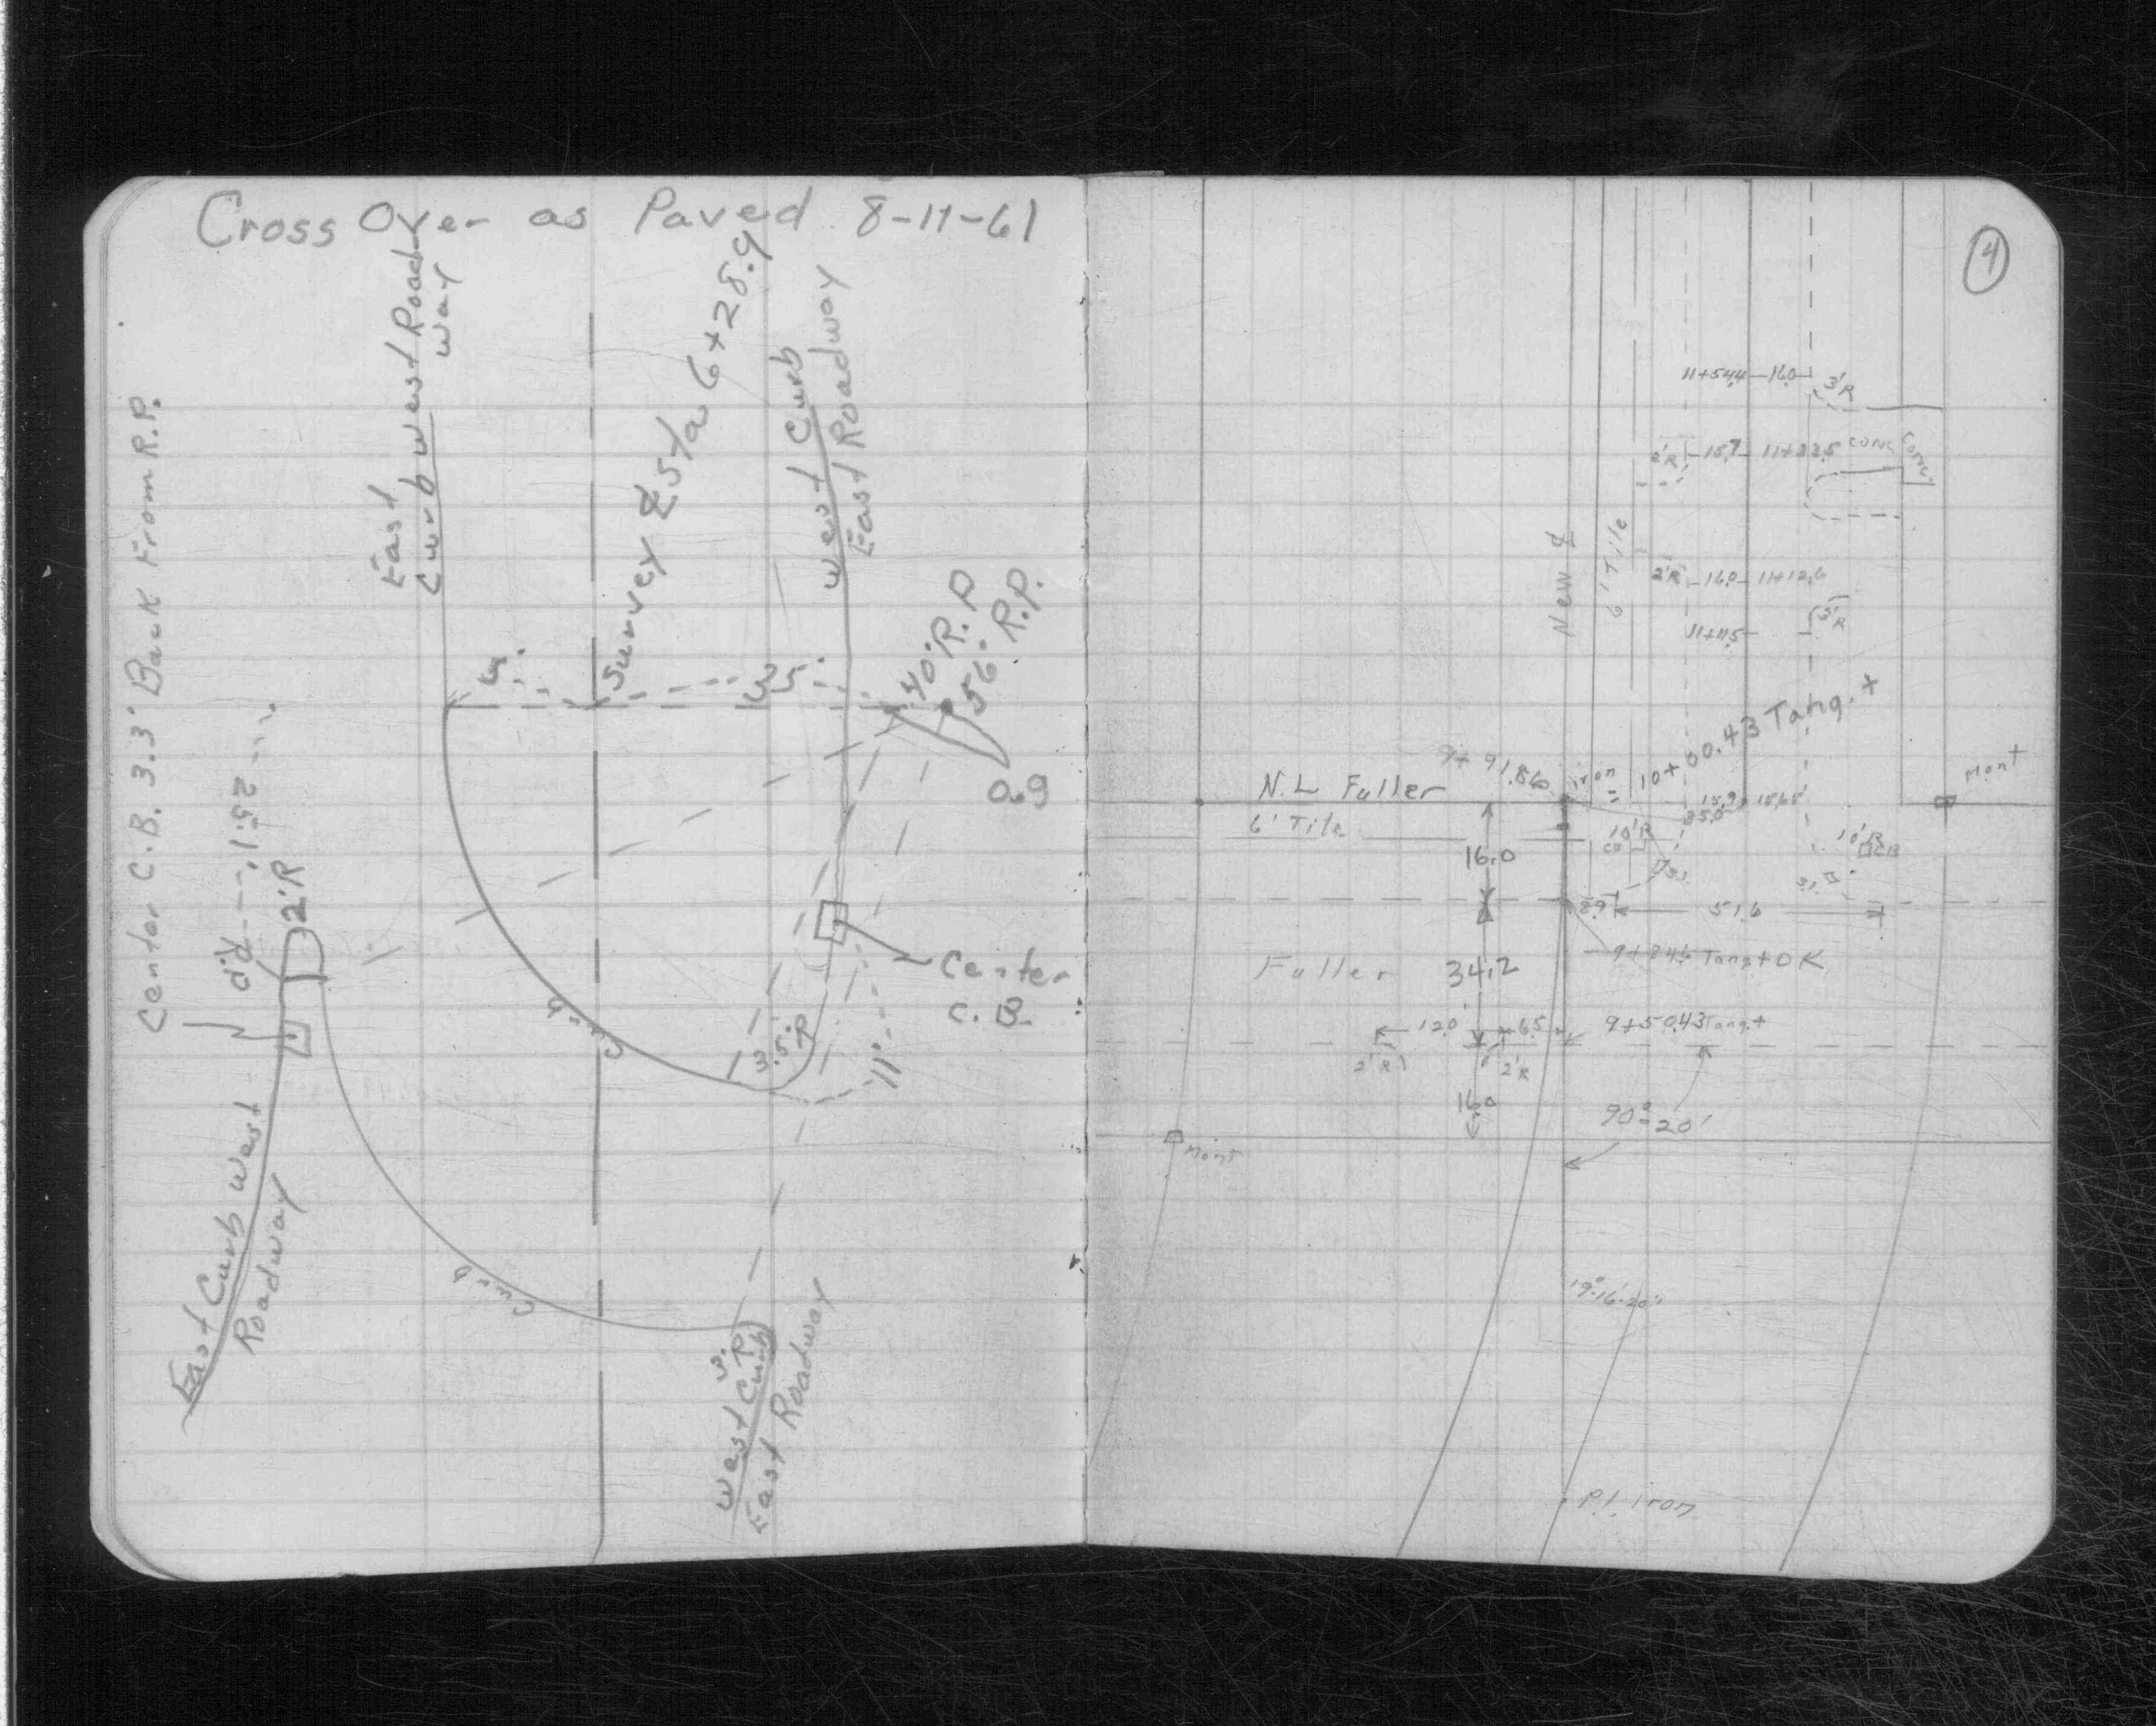 Cross Over as Paved 8-11-61
East
Curb West Road
way
Survey ℄ Sta 6+28.9
West Curb
East Roadway
Center C.B. 3.3' Back From R.P.
25.1'
R.P.
2'R
40' R.P.
56' R.P.
0.9
Center
C.B.
3.5' R
11'
Curb
Curb
East Curb West
Roadway
3' R
West Curb
East Roadway
4
11+54.4 16.0
3'R
2'R 15.7 11+33.5 conc
Conc.
New ℄
6' Tile
2'R 16.0 11+12.6
11+11.5
3'R
10+00.43 Tang.+
9+91.86
iron
Mont
N.L Fuller
6' Tile
35.0
16.0
10'R
CB
10'R
CB
8.9
51.6
9+84.6 Tang+ OK
Fuller
34.2
12.0
6.5
9+50.43 Tang.+
2'R
2'R
16.0
90°-20'
Mont
19°-16'-20"
P.I. iron